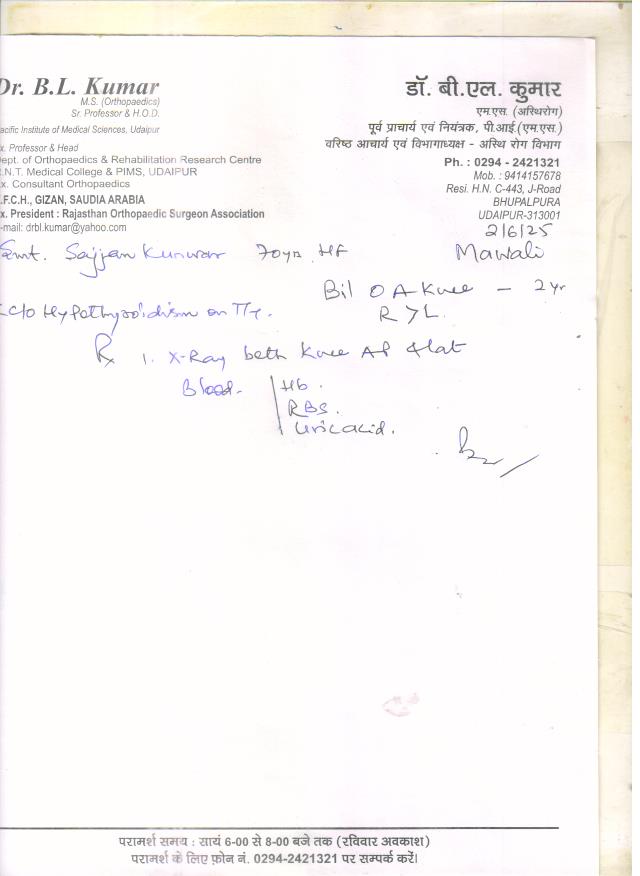 Dr. B.L. Kumar
M.S. (Orthopaedics)
Sr. Professor & H.O.D.
acific Institute of Medical Sciences, Udaipur
x. Professor & Head
Dept. of Orthopaedics & Rehabilitation Research Centre
.N.T. Medical College & PIMS, UDAIPUR
x. Consultant Orthopaedics
.F.C.H., GIZAN, SAUDIA ARABIA
x. President : Rajasthan Orthopaedic Surgeon Association
-mail: drbl.kumar@yahoo.com
डॉ. बी.एल. कुमार
एम.एस. (अस्थिरोग)
पूर्व प्राचार्य एवं नियंत्रक, पी.आई.(एम.एस.)
वरिष्ठ आचार्य एवं विभागाध्यक्ष - अस्थि रोग विभाग
Ph. : 0294 - 2421321
Mob. : 9414157678
Resi. H.N. C-443, J-Road
BHUPALPURA
UDAIPUR-313001
2/6/25
Smt. Sajjan Kunwar 70yr HF Mawali
Bil O A Knee - 2 yr
R > L
c/o Hypothyroidism on T/t.
Rx 1. X-Ray both Knee AP & lat
Blood. Hb.
RBS.
Uric acid.
परामर्श समय : सायं 6-00 से 8-00 बजे तक (रविवार अवकाश)
परामर्श के लिए फ़ोन नं. 0294-2421321 पर सम्पर्क करें।